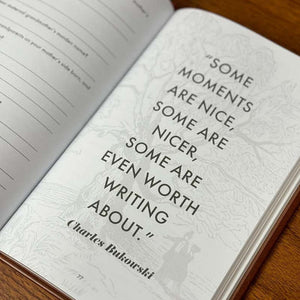 maternal grandmother's maiden name?
grandparents on your mother's side form, and
"SOME
MOMENTS
ARE NICE,
SOME ARE
NICER,
SOME ARE
EVEN WORTH
WRITING
ABOUT."
Charles Bukowski
77